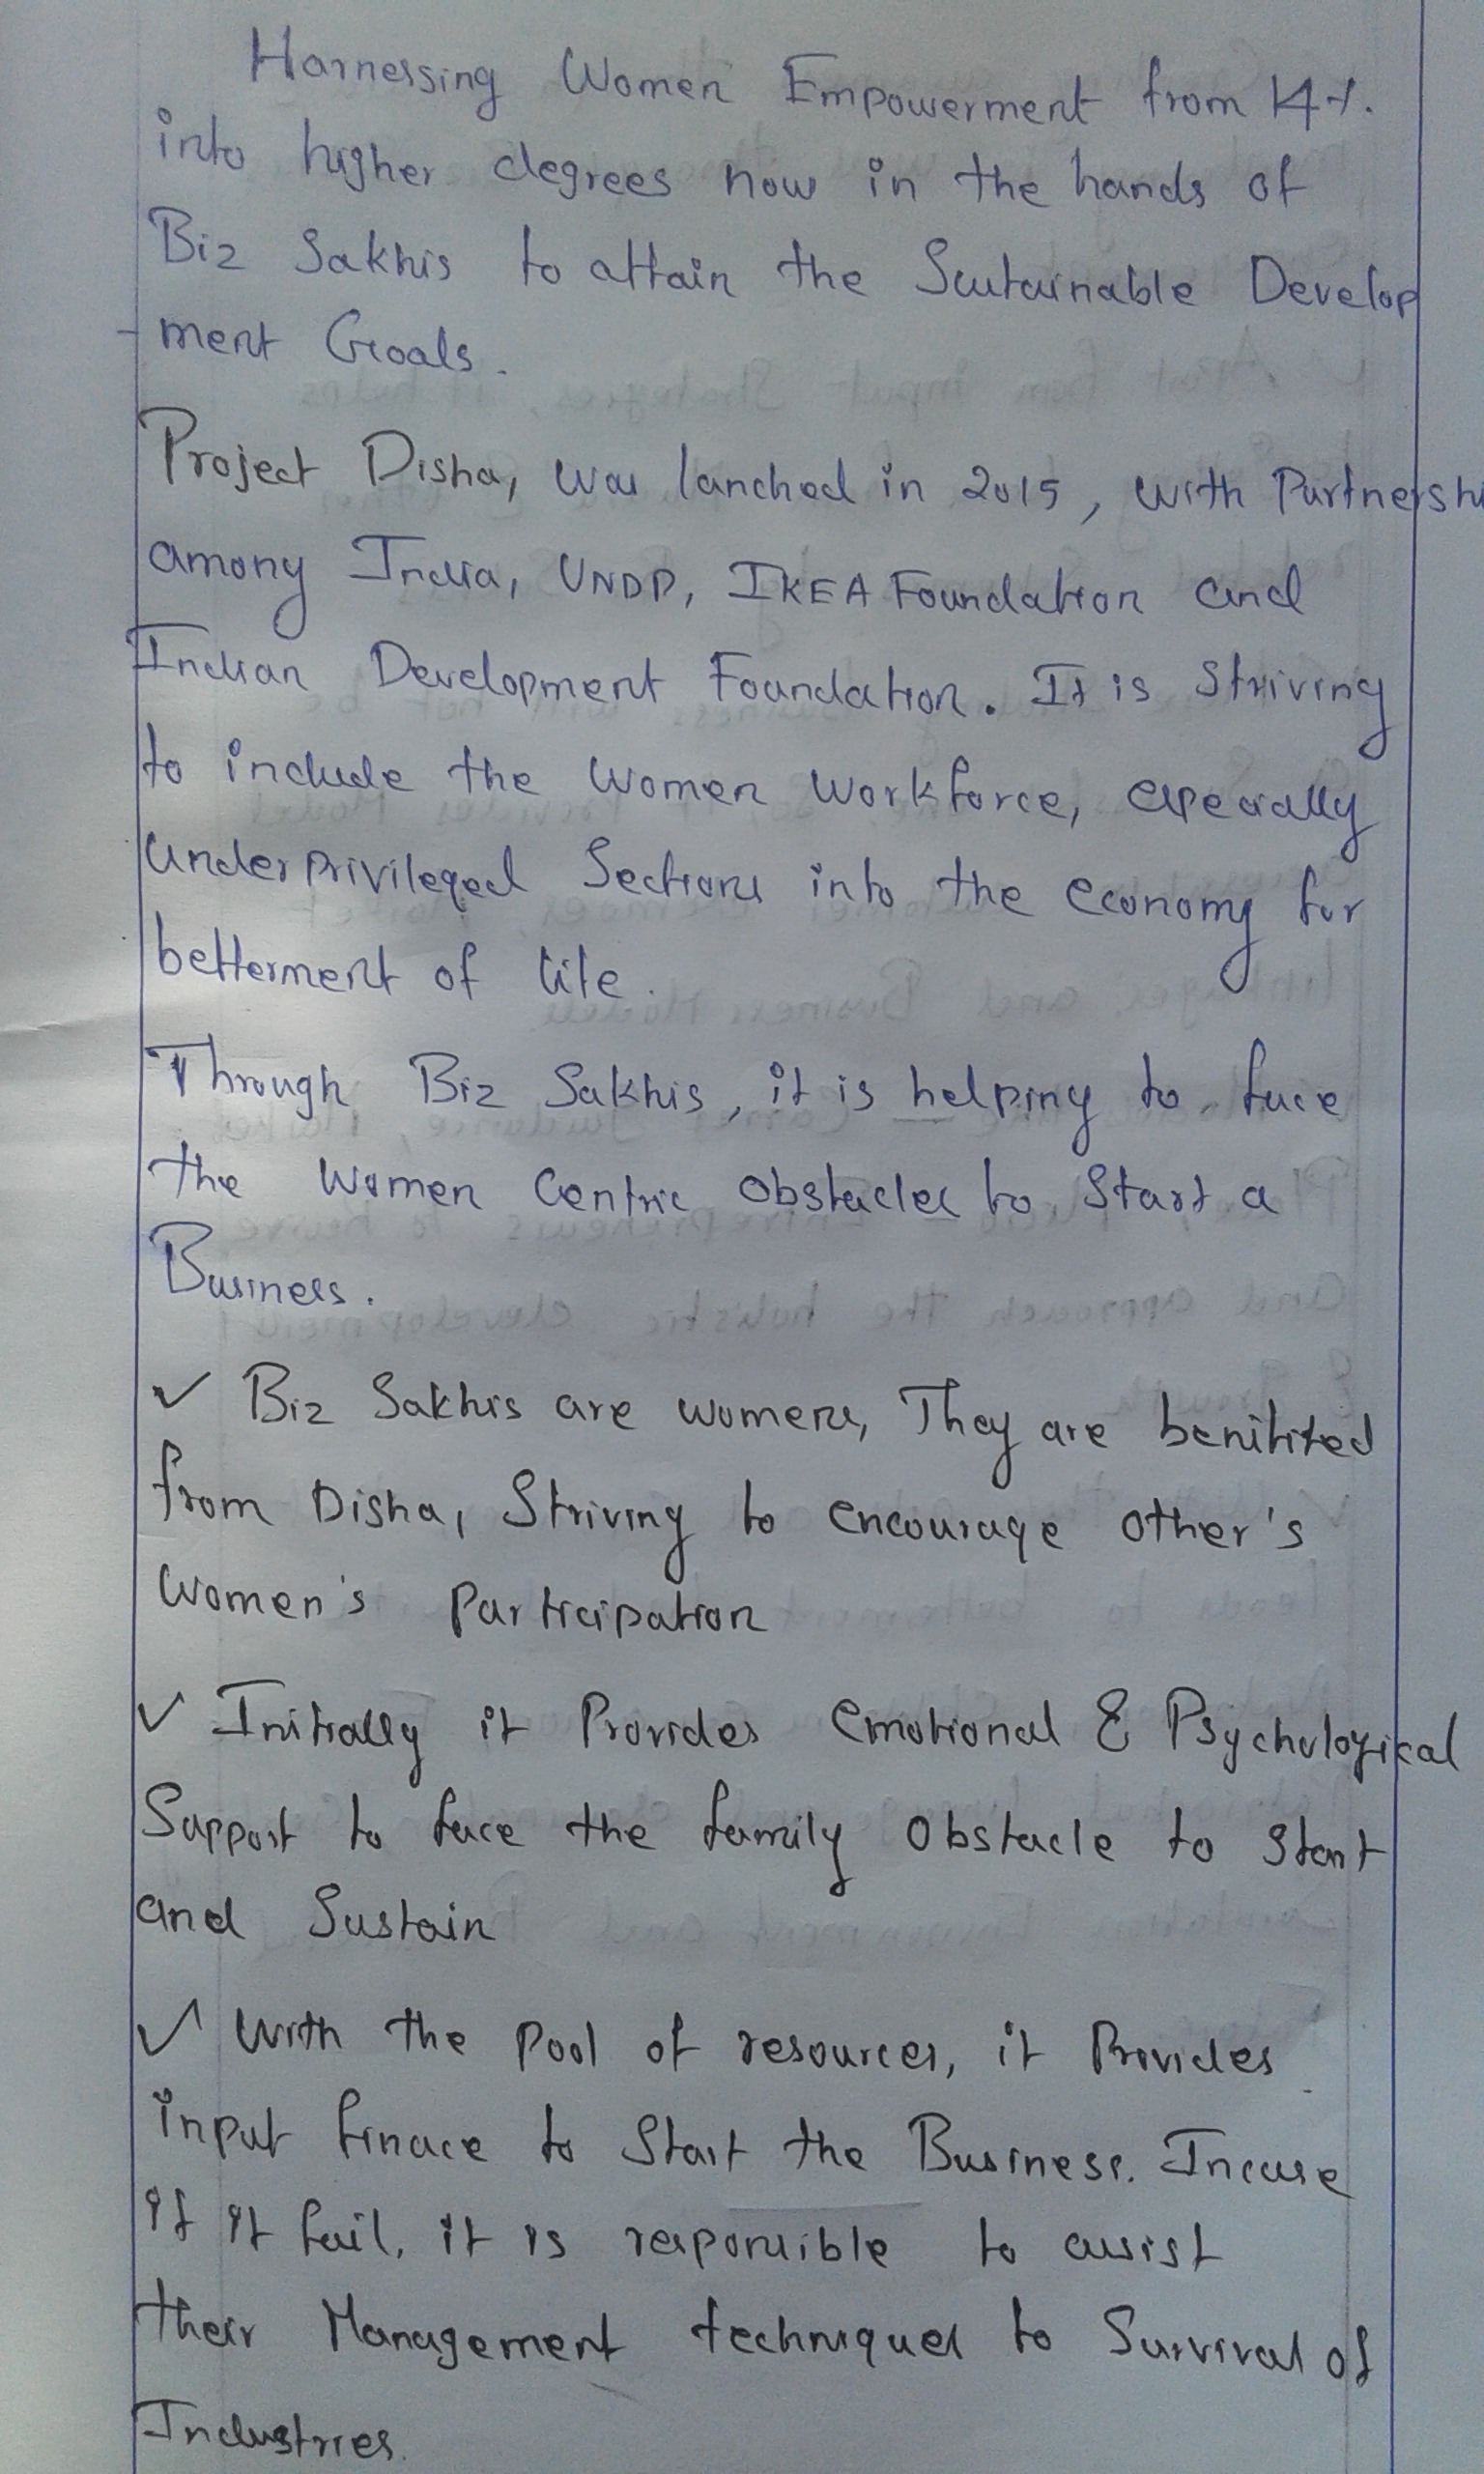 Harnessing Women Empowerment from 14%.
into higher degrees now in the hands of
Biz Sakhis to attain the Sustainable Develop
-ment Goals.
Project Disha, was lanched in 2015, with Partnershi
among India, UNDP, IKEA Foundation and
Indian Development Foundation. It is striving
to include the women workforce, especially
underprivileged Sections into the economy for
betterment of life.
Through Biz Sakhis, it is helping to face
the women centric obstacles to Start a
Business.
✓ Biz Sakhis are womens, They are benifited
from Disha, Striving to encourage other's
women's participation
✓ Initially it Provides emotional & Psychological
Support to face the family obstacle to start
and Sustain
✓ With the pool of resources, it Provides
input finace to Start the Business. Incase
if it fail, it is responsible to assist
their Management techniques to Survival of
Industries.